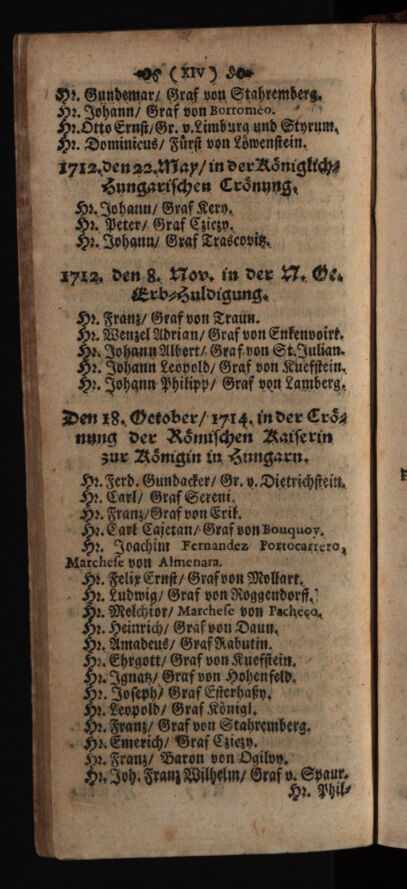 (XIV)
Hr. Gundemar/ Graf von Stahremberg.
Hr. Johann/ Graf von Borromeo.
Hr. Otto Ernst/ Gr. v. Limburg und Styrum.
Hr. Dominicus/ Fürst von Löwenstein.
1712. den 22. May/ in der Königlich-
Hungarischen Crönung.
Hr. Johann/ Graf Kery.
Hr. Peter/ Graf Cziczy.
Hr. Johann/ Graf Trascovitz.
1712. den 8. Nov. in der N. Oe.
Erb-Huldigung.
Hr. Franz/ Graf von Traun.
Hr. Wenzel Adrian/ Graf von Enkenvoirt.
Hr. Johann Albert/ Graf von St. Julian.
Hr. Johann Leopold/ Graf von Kuefstein.
Hr. Johann Philipp/ Graf von Lamberg.
Den 18. October/ 1714. in der Crö-
nung der Römischen Kaiserin
zur Königin in Hungarn.
Hr. Ferd. Gundacker/ Gr. v. Dietrichstein.
Hr. Carl/ Graf Sereni.
Hr. Franz/ Graf von Erik.
Hr. Carl Cajetan/ Graf von Bouquoy.
Hr. Joachim Fernandez Portocarrero,
Marchese von Almenara.
Hr. Felix Ernst/ Graf von Mollart.
Hr. Ludwig/ Graf von Roggendorff.
Hr. Melchior/ Marchese von Pacheco.
Hr. Heinrich/ Graf von Daun.
Hr. Amadeus/ Graf Rabutin.
Hr. Ehrgott/ Graf von Kuefstein.
Hr. Ignatz/ Graf von Hohenfeld.
Hr. Joseph/ Graf Esterhaßy.
Hr. Leopold/ Graf Königl.
Hr. Franz/ Graf von Stahremberg.
Hr. Emerich/ Graf Cziczy.
Hr. Franz/ Baron von Ogilvy.
Hr. Joh. Franz Wilhelm/ Graf v. Spaur.
Hr. Phil-